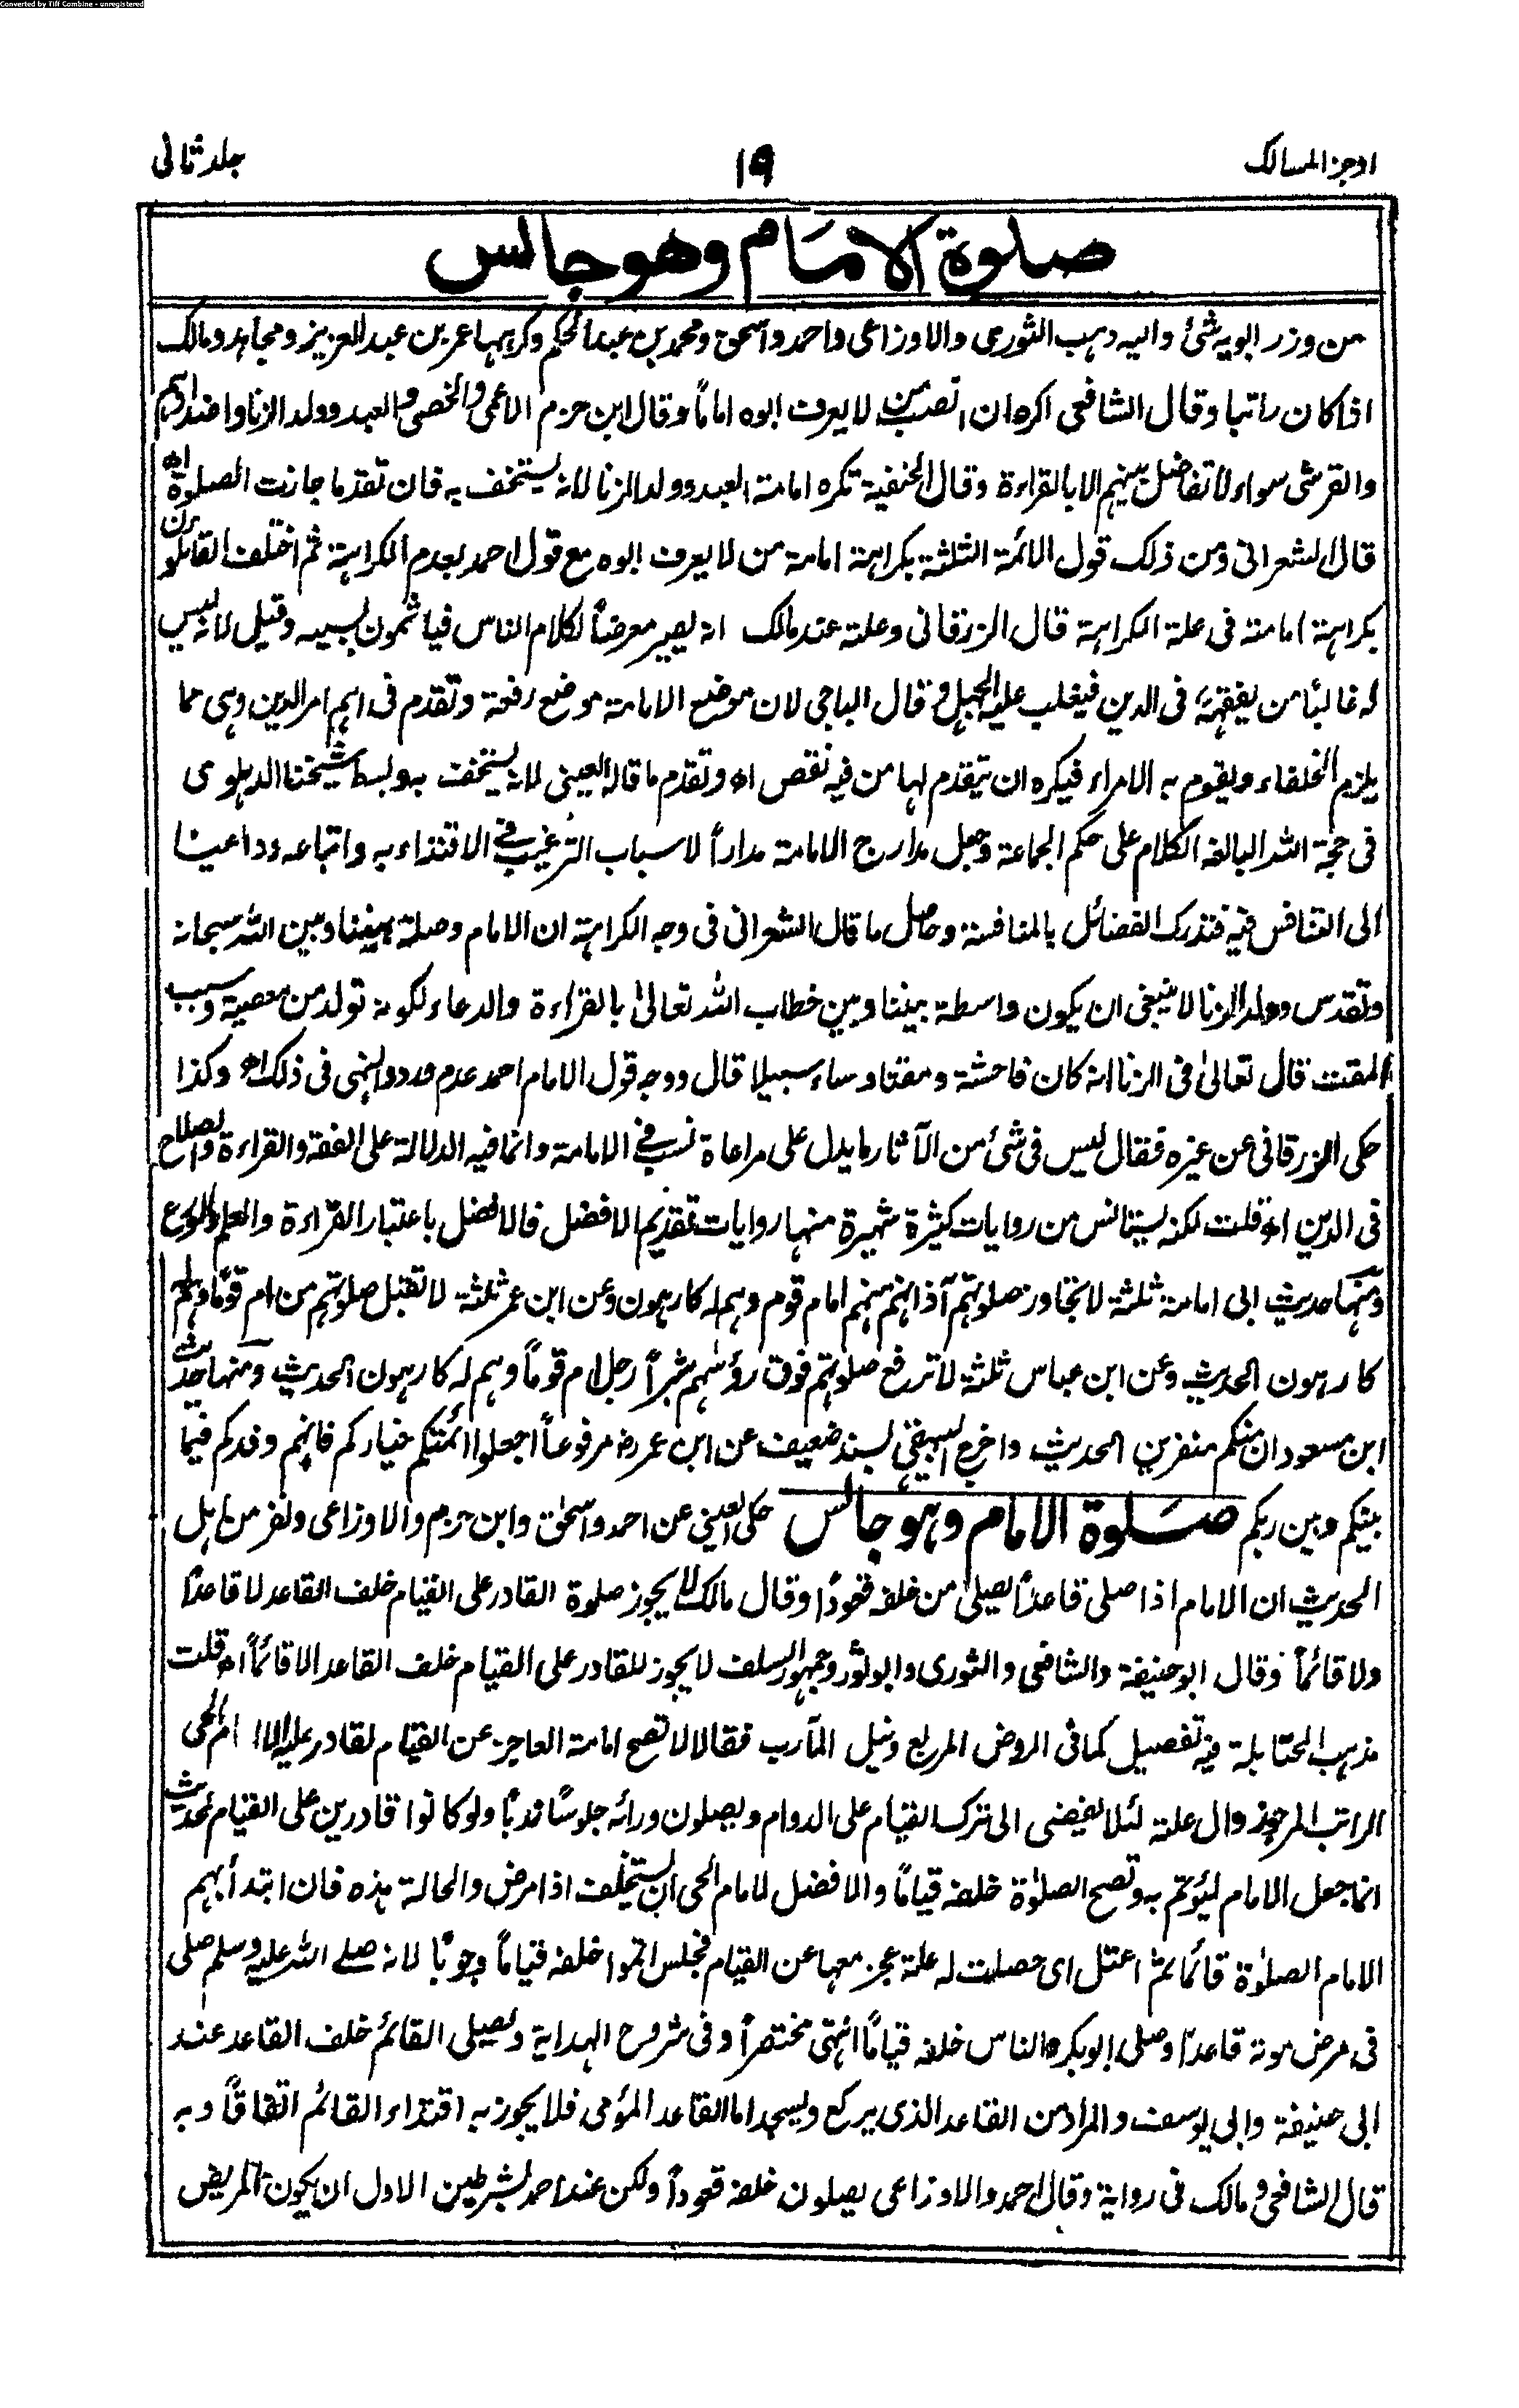 Converted by Tiff Combine - unregistered
اوجز المسالک
١٩
جلد ثانی
صلوة الامام وهو جالس
من وزر ابویہ شئ والیہ ذہب الثوری والاوزاعی واحمد واسحق ومحمد بن عبد الحکم وکرہہا عمر بن عبد العزیز ومجاہد ومالک
اذا کان راتبا وقال الشافعی اکرہ ان انصب من لا یعرف ابوہ اماماً وقال ابن حزم الاعمی والخصی والعبد وولد الزنا واضدادہم
والقرشی سواء لا تفاضل بینہم الا بالقراءة وقال الحنفیة تکرہ امامة العبد وولد الزنا لانہ یستخف بہ فان تقدما جازت الصلوة اھ
قال الشعرانی ومن ذلک قول الائمة الثلثة بکراہة امامة من لا یعرف ابوہ مع قول احمد بعدم الکراہة ثم اختلف القائلون
بکراہة امامتہ فی علة الکراہة قال الزرقانی وعلتہ عند مالک انہ یصیر معرضاً لکلام الناس فیاثمون بسببہ وقیل لانہ لیس
لہ غالباً من یفقہہ فی الدین فیغلب علیہ الجہل وقال الباجی لان موضع الامامة موضع رفعة وتقدم فی اہم امر الدین وہی مما
یلزم الخلفاء ویقوم بہ الامراء فیکرہ ان یتقدم لہا من فیہ نقص اھ وتقدم ما قالہ العینی لانہ یستخف بہ وبسط شیخنا الدہلوی
فی حجة اللہ البالغہ الکلام علی حکم الجماعة وجعل مدارج الامامة مداراً لاسباب الترغیب فی الاقتداء بہ واتباعہ وداعیتنا
الی التنافس فیہ فتدرک الفضائل بالمنافسة وحاصل ما قال الشعرانی فی وجہ الکراہة ان الامام وصلة بیننا وبین اللہ سبحانہ
وتقدس وولد الزنا لا ینبغی ان یکون واسطة بیننا وبین خطاب اللہ تعالیٰ بالقراءة والدعاء لکونہ تولد من معصیة وسبب
المقت قال تعالیٰ فی الزنا انہ کان فاحشة ومقتا وساء سبیلا قال ووجہ قول الامام احمد عدم ورود النہی فی ذلک اھ وکذا
حکی الزرقانی عن غیرہ فقال لیس فی شئ من الآثار ما یدل علی مراعاة نسب فی الامامة وانما فیہ الدلالة علی الفقہ والقراءة والصلاح
فی الدین اھ قلت لکنہ یستانس من روایات کثیرة شہیرة منہا روایات تقدیم الافضل فالافضل باعتبار القراءة والعلم والورع
ومنہا حدیث ابی امامة ثلثة لا تجاوز صلوتہم آذانہم منہم امام قوم وہم لہ کارہون وعن ابن عمر ثلثة لا تقبل صلوتہم من ام قوماً وہم لہ
کارہون الحدیث وعن ابن عباس ثلثة لا ترفع صلوتہم فوق رؤسہم شبراً رجل ام قوماً وہم لہ کارہون الحدیث ومنہا حدیث
ابن مسعود ان منکم منفرین الحدیث واخرج البیہقی بسند ضعیف عن ابن عمر رضہ مرفوعاً اجعلوا ائمتکم خیارکم فانہم وفدکم فیما
بینکم وبین ربکم صلوة الامام وہو جالس حکی العینی عن احمد واسحٰق وابن حزم والاوزاعی ونفر من اہل
الحدیث ان الامام اذا صلی قاعداً یصلی من خلفہ قعوداً وقال مالک لا یجوز صلوة القادر علی القیام خلف القاعد لا قاعداً
ولا قائماً وقال ابو حنیفة والشافعی والثوری وابو ثور وجمہور السلف لا یجوز للقادر علی القیام خلف القاعد الا قائماً اھ قلت
مذہب الحنابلة فیہ تفصیل کما فی الروض المربع ونیل المآرب فقالا لا تصح امامة العاجز عن القیام لقادر علیہ الا امام الحی
الراتب المرجو زوال علتہ لئلا یفضی الی ترک القیام علی الدوام ویصلون ورائہ جلوساً ندباً ولو کانوا قادرین علی القیام لحدیث
انما جعل الامام لیؤتم بہ وتصح الصلوٰة خلفہ قیاماً والافضل لامام الحی ان یستخلف اذا مرض والحالة ہذہ فان ابتدأ بہم
الامام الصلوٰة قائماً ثم اعتل ای حصلت لہ علة عجز معہا عن القیام فجلس اتموا خلفہ قیاماً وجوباً لانہ صلے اللہ علیہ وسلم صلی
فی مرض موتہ قاعداً وصلی ابو بکر والناس خلفہ قیاماً انتہی مختصراً وفی شروح الہدایة ویصلی القائم خلف القاعد عند
ابی حنیفة وابی یوسف والمراد من القاعد الذی یرکع ویسجد اما القاعد المؤمی فلا یجوز بہ اقتداء القائم اتفاقاً وبہ
قال الشافعی ومالک فی روایة وقال احمد والاوزاعی یصلون خلفہ قعوداً ولکن عند احمد بشرطین الاول ان یکون المریض